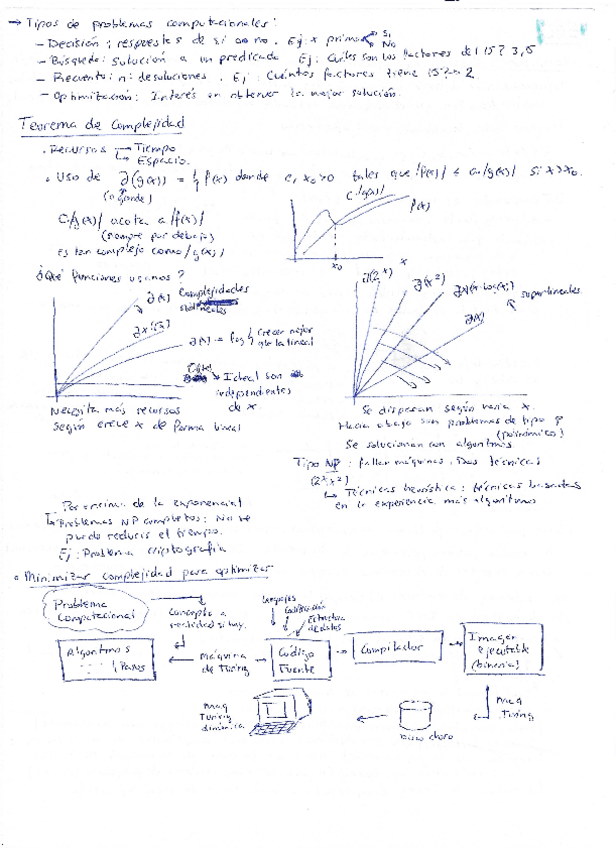 → Tipos de problemas computacionales:
- Decisión; respuestas de si o no. Ej: x primo < Si No
- Búsqueda: solución a un predicado Ej: Cuáles son los factores del 15? 3, 5
- Recuento: nº de soluciones. Ej: Cuántos factores tiene 15? = 2
- Optimización: Interés en obtener la mejor solución.
Teorema de Complejidad
• Recursos → Tiempo
→ Espacio.
• Uso de ∂(g(x)) = { f(x) donde c, x₀ > 0 tales que |f(x)| ≤ c·|g(x)| si x > x₀.
(o grande)
c·|g(x)|
f(x)
x₀
x
C·|g(x)| acota a |f(x)|
(siempre por debajo)
es tan complejo como |g(x)|
¿Qué funciones usamos?
∂(x)
Complejidades
∂(2^x)
∂(x²)
superlineales
∂(x)
Crecen mejor
que la lineal
Ideal son
independientes
de x.
Necesita más recursos
según crece x de forma lineal
Se disparan según varía x.
Hacia abajo son problemas de tipo P
(polinómicos)
Se solucionan con algoritmos
Tipo NP: fallan máquinas. Dos técnicas
(2^x, x²)
↳ Técnicas heurística: técnicas basadas
en la experiencia más algoritmos
Por encima de la exponencial
↳ Problemas NP completos: No se
puede reducir el tiempo.
Ej: Problema criptografía
• Minimizar complejidad para optimizar
Problema
Computacional
Concepto a
realidad si hay.
Lenguajes
Codificación
Estructura
de datos
Algoritmos
Pasos
máquina
de Turing
Código
Fuente
Compilador
Imagen
ejecutable
(binaria)
maq
Turing
dinámica
disco duro
Maq
Turing